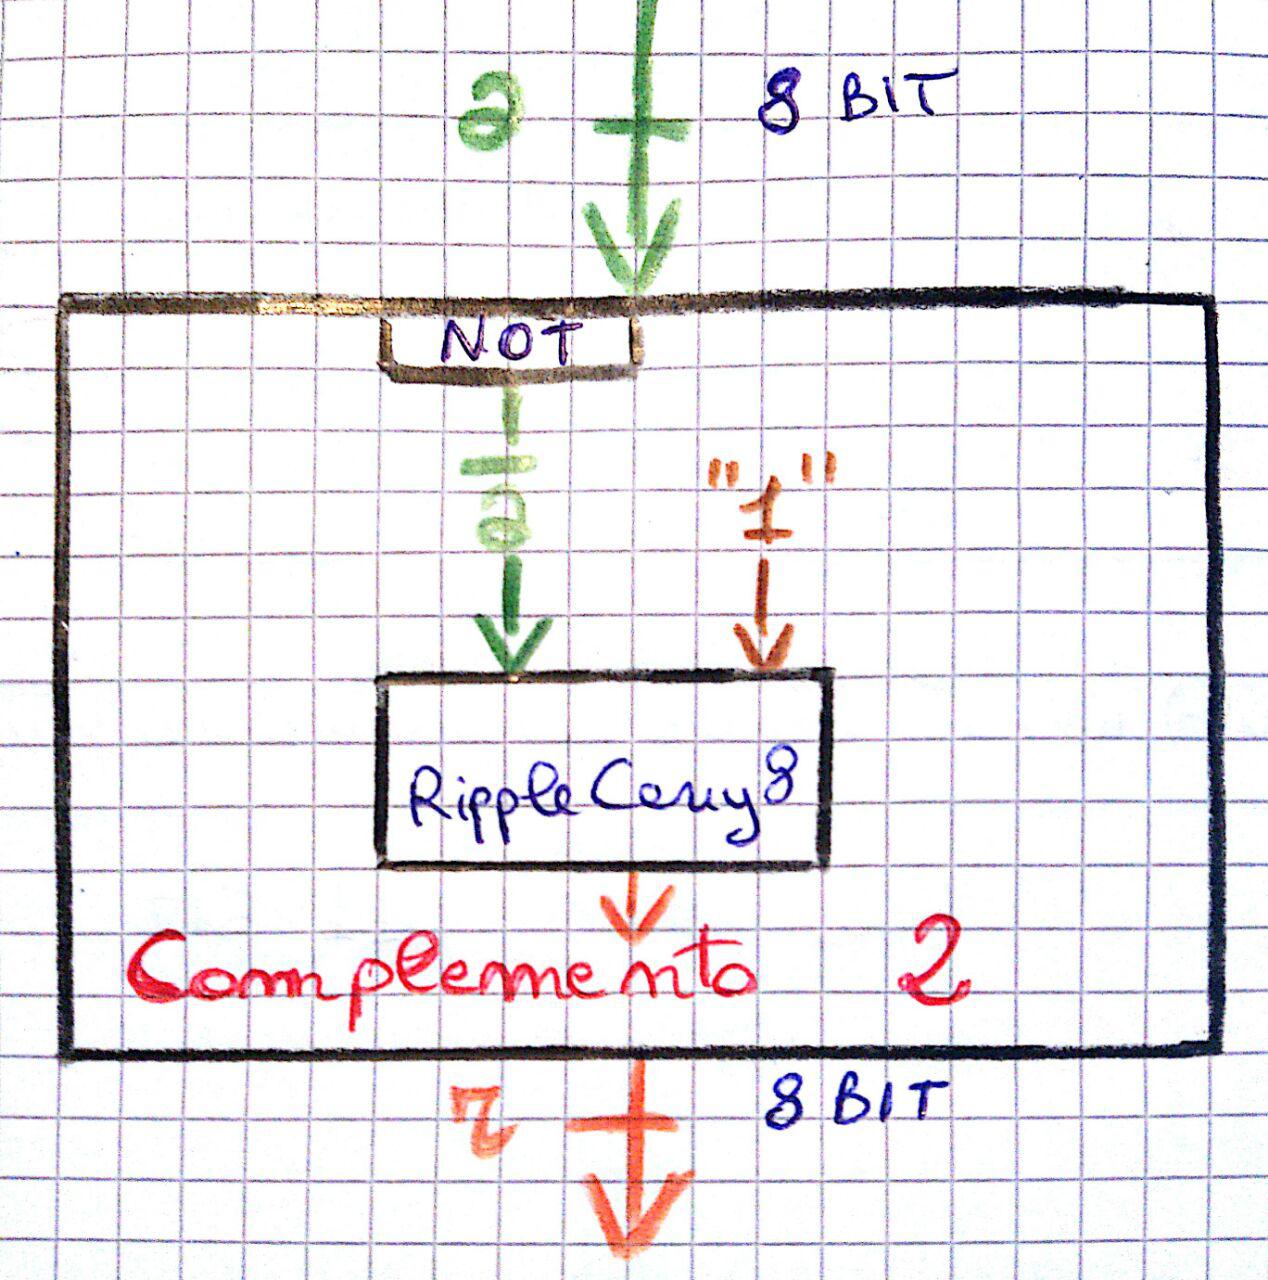 a 8 BIT
NOT
"1"
ā
RippleCarry8
Complemento 2
r 8 BIT